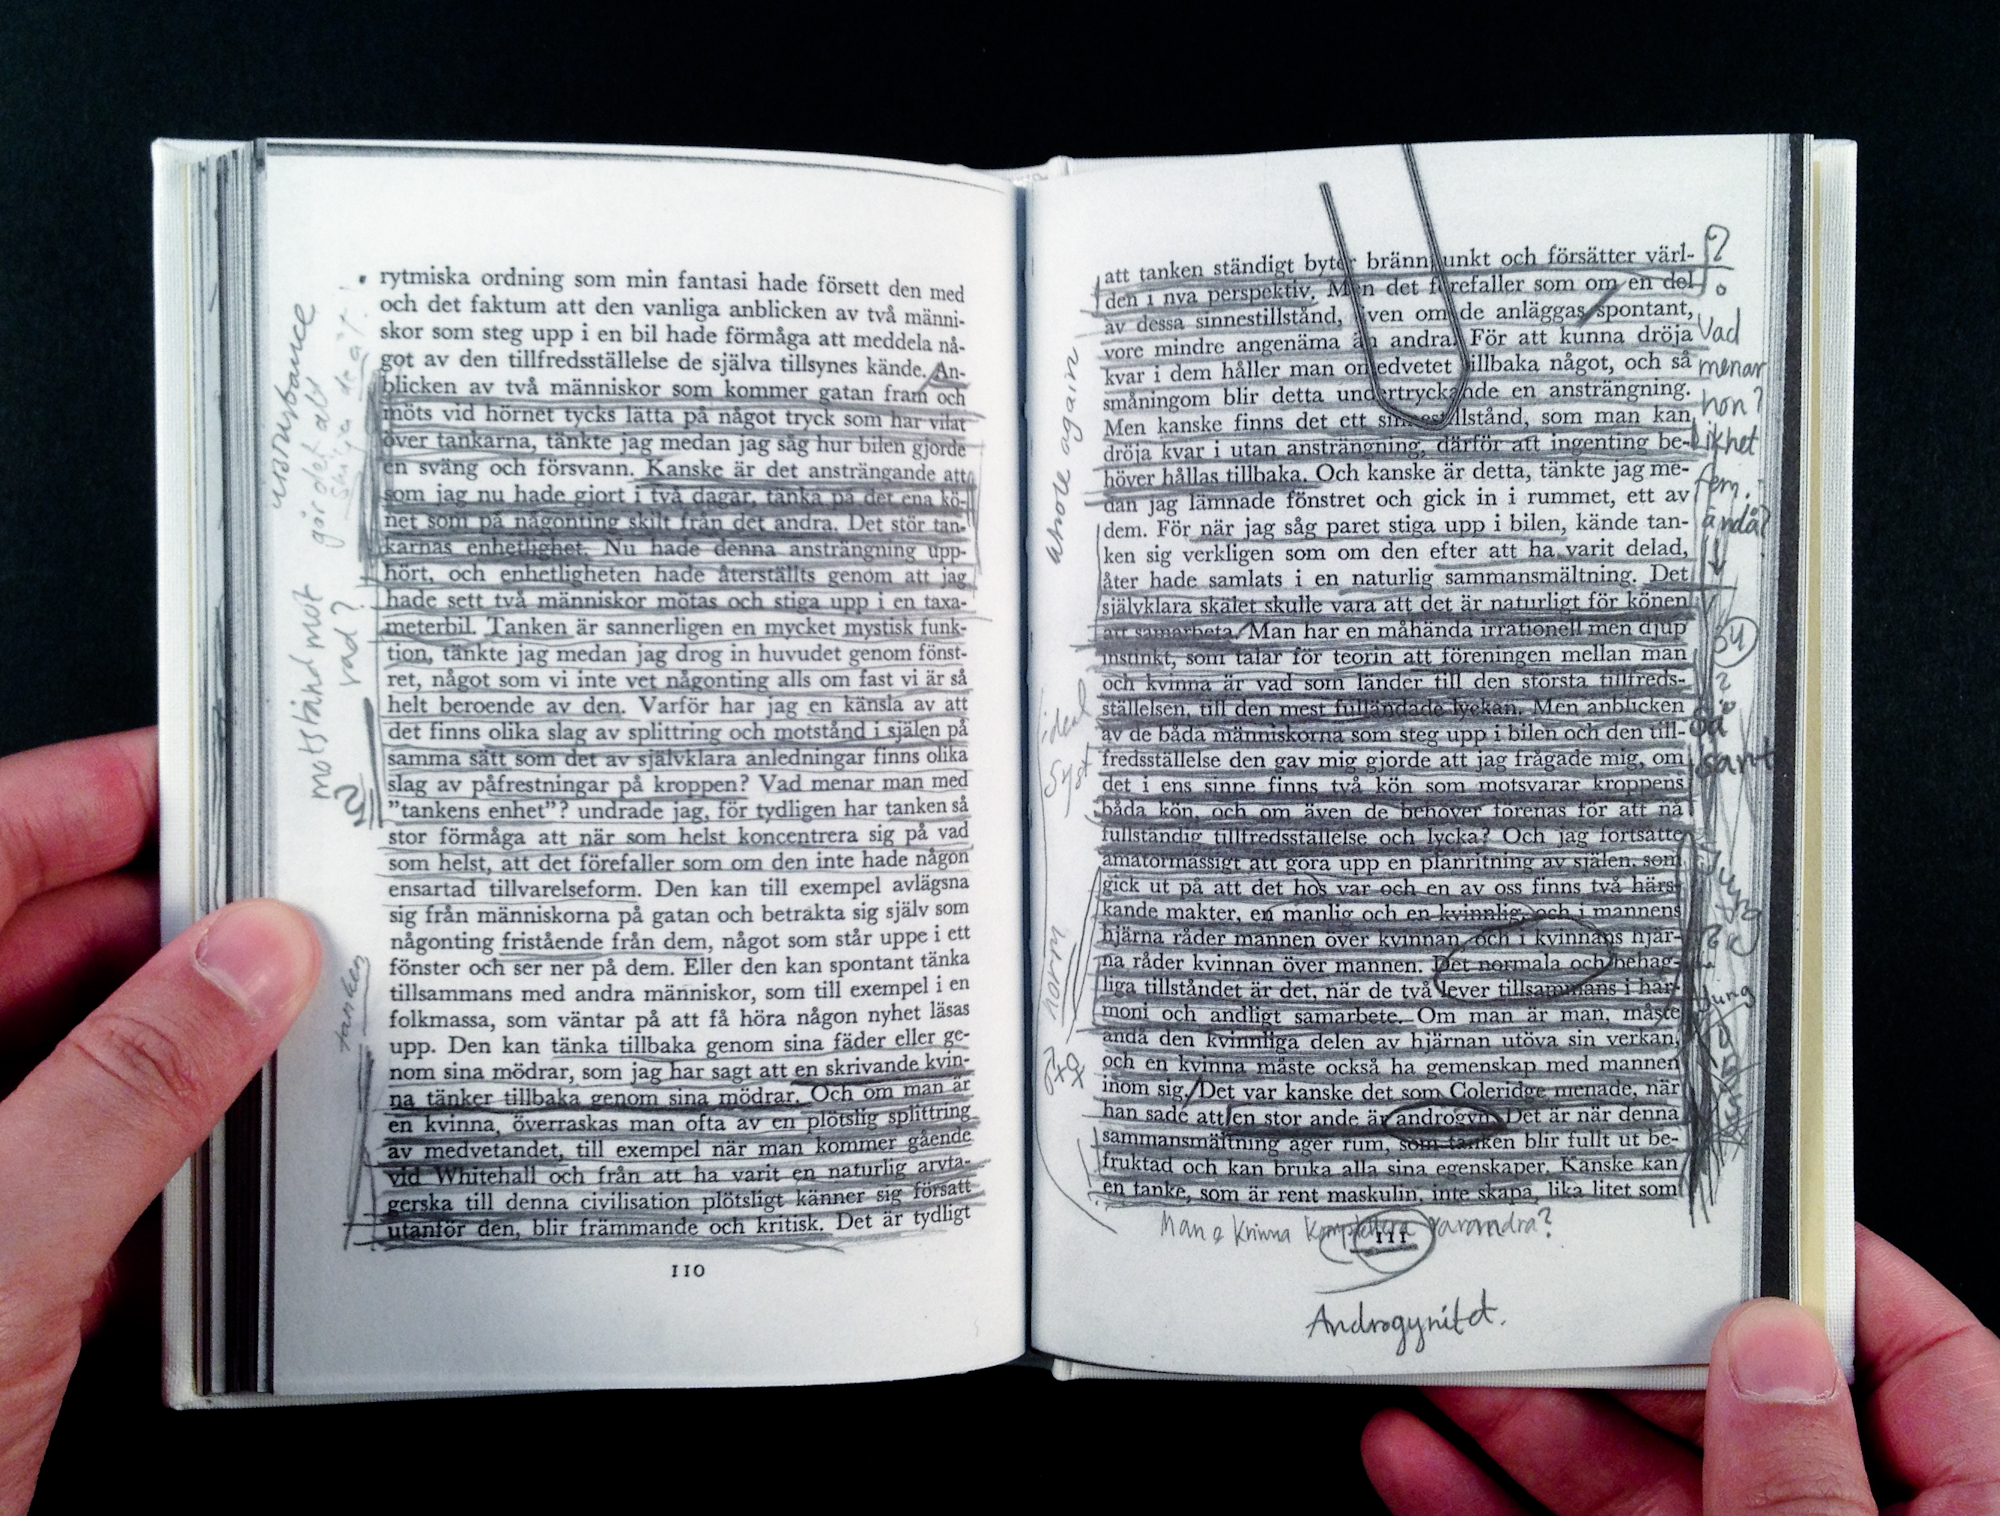 rytmiska ordning som min fantasi hade försett den med
och det faktum att den vanliga anblicken av två männi-
skor som steg upp i en bil hade förmåga att meddela nå-
got av den tillfredsställelse de själva tillsynes kände. An-
blicken av två människor som kommer gatan fram och
möts vid hörnet tycks lätta på något tryck som har vilat
över tankarna, tänkte jag medan jag såg hur bilen gjorde
en sväng och försvann. Kanske är det ansträngande att
som jag nu hade gjort i två dagar, tänka på det ena kö-
net som på någonting skilt från det andra. Det stör tan-
karnas enhetlighet. Nu hade denna ansträngning upp-
hört, och enhetligheten hade återställts genom att jag
hade sett två människor mötas och stiga upp i en taxa-
meterbil. Tanken är sannerligen en mycket mystisk funk-
tion, tänkte jag medan jag drog in huvudet genom fönst-
ret, något som vi inte vet någonting alls om fast vi är så
helt beroende av den. Varför har jag en känsla av att
det finns olika slag av splittring och motstånd i själen på
samma sätt som det av självklara anledningar finns olika
slag av påfrestningar på kroppen? Vad menar man med
”tankens enhet”? undrade jag, för tydligen har tanken så
stor förmåga att när som helst koncentrera sig på vad
som helst, att det förefaller som om den inte hade någon
ensartad tillvarelseform. Den kan till exempel avlägsna
sig från människorna på gatan och betrakta sig själv som
någonting fristående från dem, något som står uppe i ett
fönster och ser ner på dem. Eller den kan spontant tänka
tillsammans med andra människor, som till exempel i en
folkmassa, som väntar på att få höra någon nyhet läsas
upp. Den kan tänka tillbaka genom sina fäder eller ge-
nom sina mödrar, som jag har sagt att en skrivande kvin-
na tänker tillbaka genom sina mödrar. Och om man är
en kvinna, överraskas man ofta av en plötslig splittring
av medvetandet, till exempel när man kommer gående
vid Whitehall och från att ha varit en naturlig arvta-
gerska till denna civilisation plötsligt känner sig försatt
utanför den, blir främmande och kritisk. Det är tydligt
110
motstånd mot
vad?
tanken
att tanken ständigt byter brännpunkt och försätter värl-
den i nya perspektiv. Men det förefaller som om en del
av dessa sinnestillstånd, även om de anläggas spontant,
vore mindre angenäma än andra. För att kunna dröja
kvar i dem håller man omedvetet tillbaka något, och så
småningom blir detta undertryckande en ansträngning.
Men kanske finns det ett sinnestillstånd, som man kan
dröja kvar i utan ansträngning, därför att ingenting be-
höver hållas tillbaka. Och kanske är detta, tänkte jag me-
dan jag lämnade fönstret och gick in i rummet, ett av
dem. För när jag såg paret stiga upp i bilen, kände tan-
ken sig verkligen som om den efter att ha varit delad,
åter hade samlats i en naturlig sammansmältning. Det
självklara skälet skulle vara att det är naturligt för könen
att samarbeta. Man har en måhända irrationell men djup
instinkt, som talar för teorin att föreningen mellan man
och kvinna är vad som länder till den största tillfreds-
ställelsen, till den mest fulländade lyckan. Men anblicken
av de båda människorna som steg upp i bilen och den till-
fredsställelse den gav mig gjorde att jag frågade mig, om
det i ens sinne finns två kön som motsvarar kroppens
båda kön, och om även de behöver förenas för att nå
fullständig tillfredsställelse och lycka? Och jag fortsatte
amatörmässigt att göra upp en planritning av själen, som
gick ut på att det hos var och en av oss finns två härs-
kande makter, en manlig och en kvinnlig, och i mannens
hjärna råder mannen över kvinnan, och i kvinnans hjär-
na råder kvinnan över mannen. Det normala och behag-
liga tillståndet är det, när de två lever tillsammans i har-
moni och andligt samarbete. Om man är man, måste
ändå den kvinnliga delen av hjärnan utöva sin verkan,
och en kvinna måste också ha gemenskap med mannen
inom sig. Det var kanske det som Coleridge menade, när
han sade att en stor ande är androgyn. Det är när denna
sammansmältning äger rum, som tanken blir fullt ut be-
fruktad och kan bruka alla sina egenskaper. Kanske kan
en tanke, som är rent maskulin, inte skapa, lika litet som
Man o kvinna komplettera varandra?
111
Androgynitet.
whole again
ideal
syst
norm
?
Vad
menar
hon?
Likhet
fem.
ändå?
sant
Jung